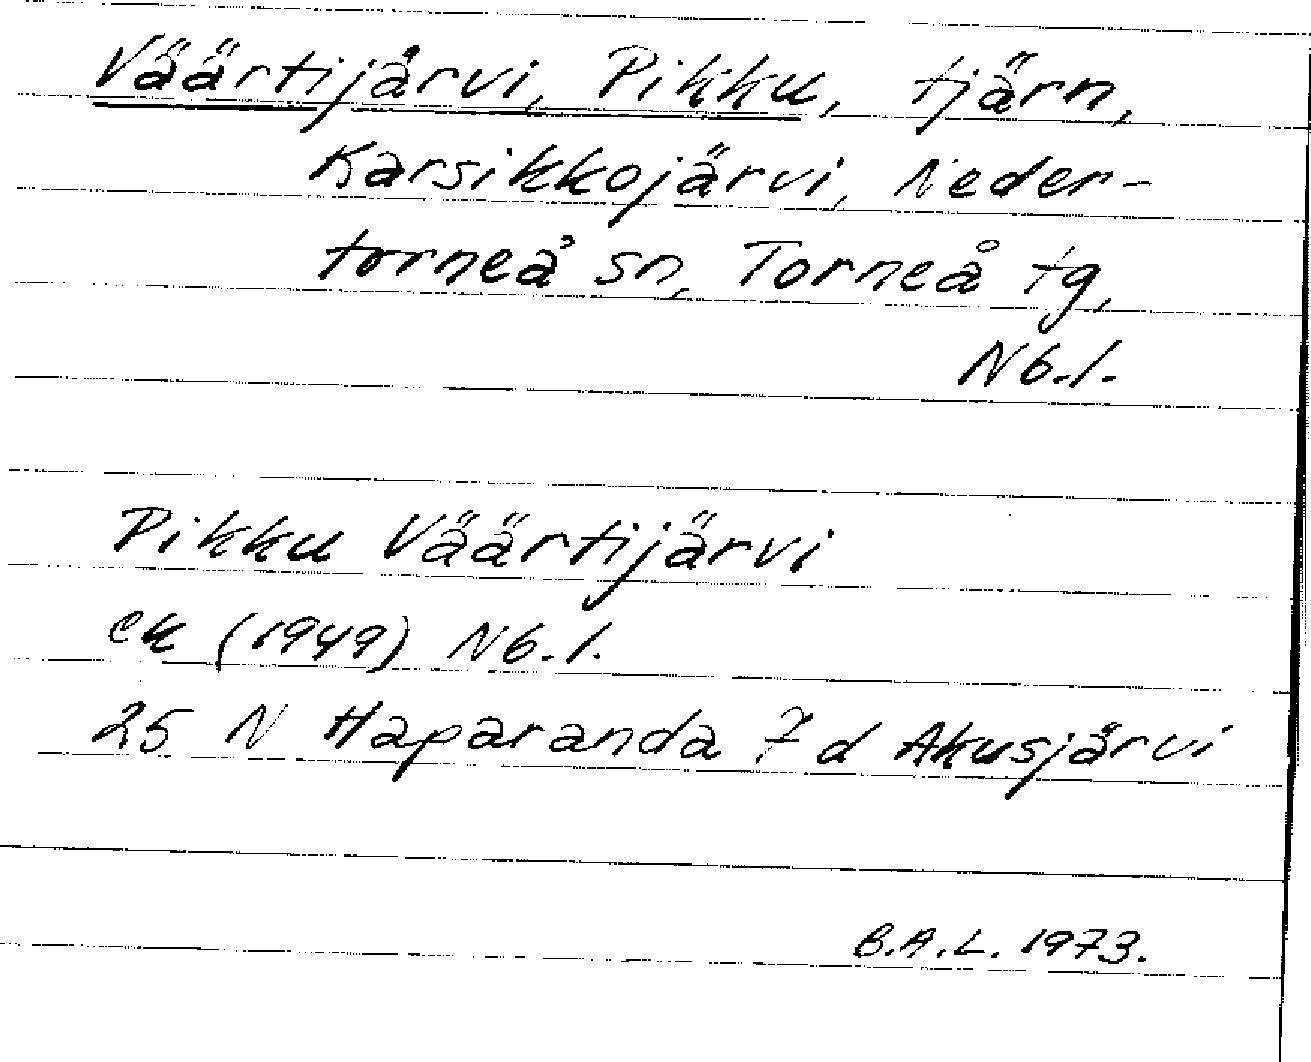 Väärtijärvi, Pikku, tjärn,
Karsikkojärvi, Neder-
torneå sn, Torneå tg,
Nb.l.
Pikku Väärtijärvi
ek (1949) Nb.l.
25 N Haparanda 7 d Akusjärvi
B.A.L. 1973.